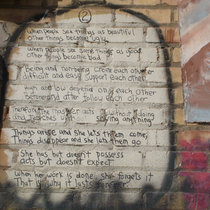 2
When people see things as beautiful
other things become ugly
When people see some things as good
other things become bad
Being and nonbeing create each other
Difficult and easy support each other
High and low depend on each other
Before and after follow each other
Therefore the Master acts without doing
and teaches without saying anything
Things arise and she lets them come,
Things disappear and she lets them go
She has but doesn't possess
acts but doesn't expect
When her work is done, she forgets it
That is why it lasts forever